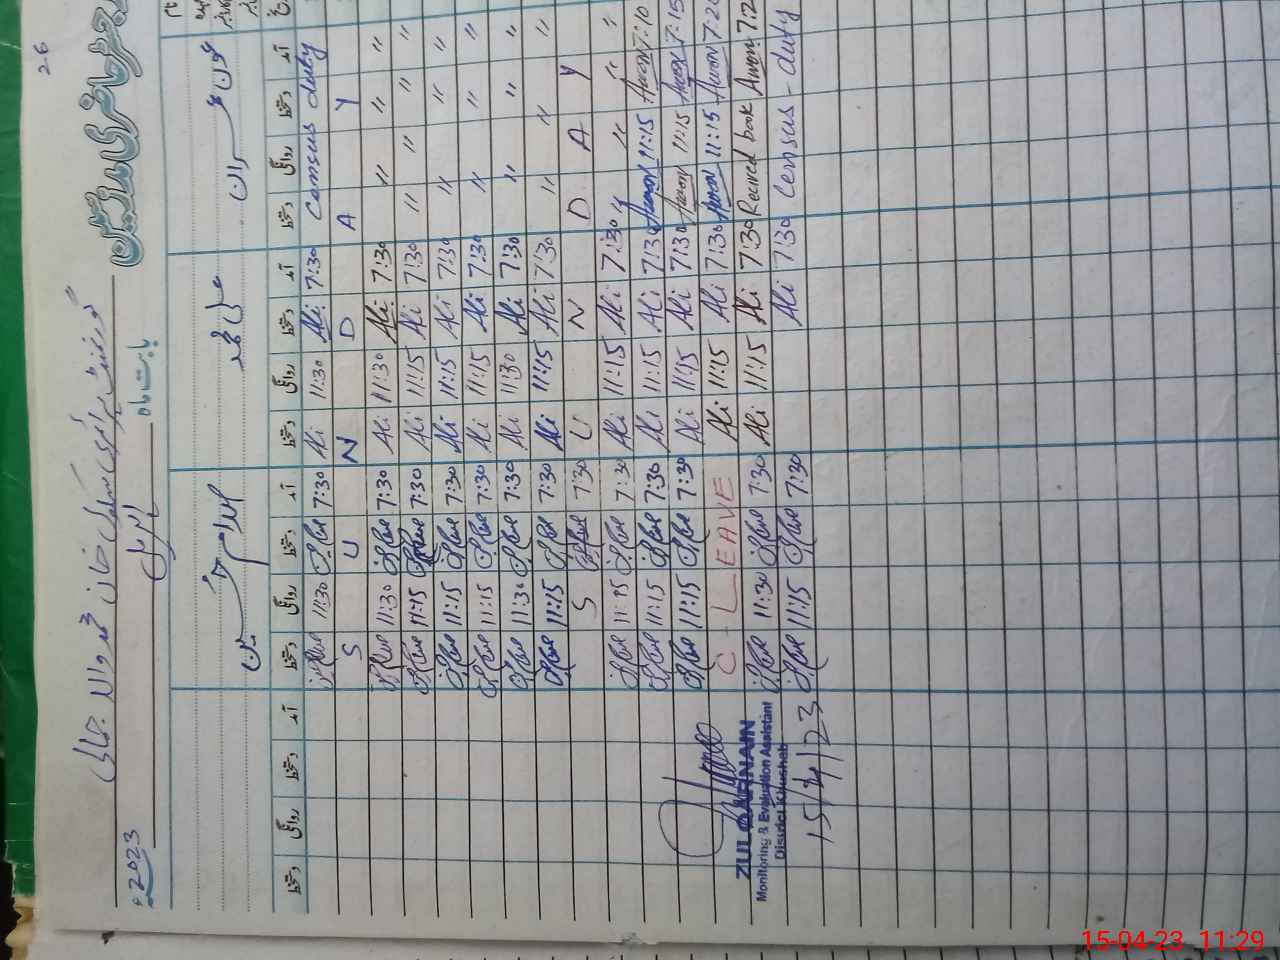 26
رجسٹر حاضری مدرسین
گورنمنٹ پرائمری سکول خان محمد والا جمالی
بابت ماہ اپریل 2023ء
عون عمران
علی محمد
دستخط روانگی دستخط آمد دستخط روانگی دستخط آمد دستخط روانگی دستخط آمد دستخط روانگی دستخط آمد
11:30 7:30 Ali 11:30 Ali 7:30 Census duty
S U N D A Y
11:30 7:30 Ali 11:30 Ali 7:30 " " "
11:15 7:30 Ali 11:15 Ali 7:30 " " " "
11:15 7:30 Ali 11:15 Ali 7:30 " " "
11:15 7:30 Ali 11:15 Ali 7:30 " " "
11:30 7:30 Ali 11:30 Ali 7:30 " " "
11:15 7:30 Ali 11:15 Ali 7:30 " " "
S 7:30 U N D A Y
11:15 7:30 Ali 11:15 Ali 7:30 " " " "
11:15 7:30 Ali 11:15 Ali 7:30 Awon 11:15 Awon 7:10
11:15 7:30 Ali 11:15 Ali 7:30 Awon 11:15 Awon 7:15
C - LEAVE Ali 11:15 Ali 7:30 Awon 11:15 Awon 7:20
11:30 7:30 Ali 11:15 Ali 7:30 Recived book Awon 7:2
11:15 7:30 Ali 7:30 Census - duty
ZULQARNAIN
Monitoring & Evaluation Assistant
District Khushab
15/4/23
15-04-23 11:29